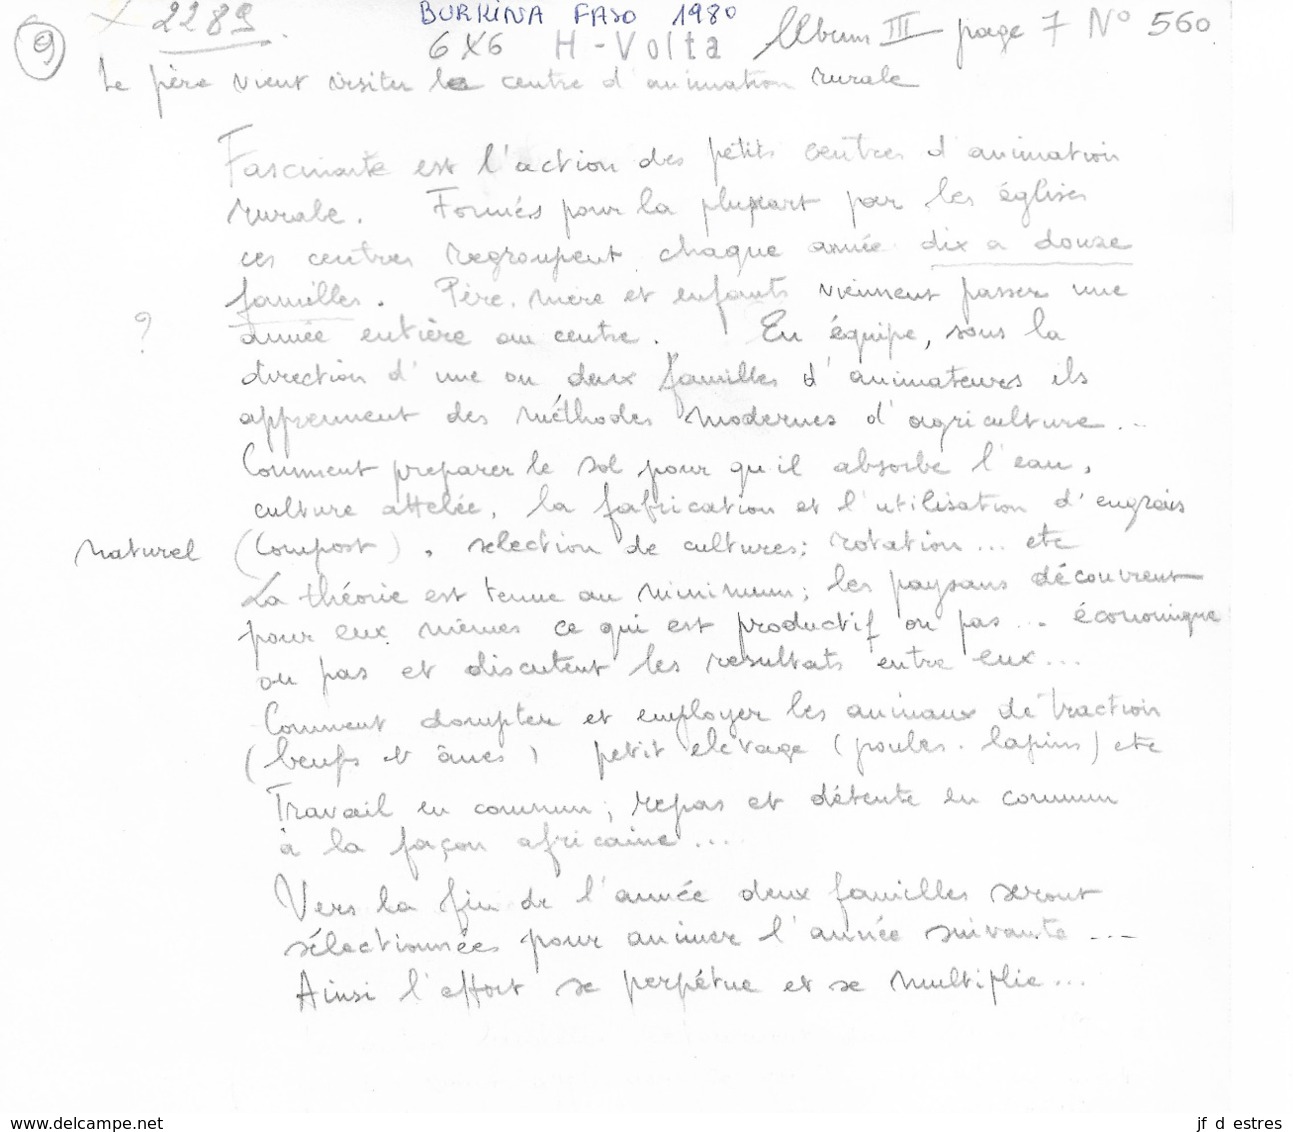 9 X 2289. BURKINA FASO 1980
6X6 H-Volta Album III page 7 N° 560
Le père vient visiter le centre d'animation rurale
Fascinante est l'action des petits centres d'animation
rurale. Formés pour la plupart par les églises
ces centres regroupent chaque année dix a douze
familles. Père, mère et enfants viennent passer une
? année entière au centre. En équipe, sous la
direction d'une ou deux familles d'animateurs ils
apprennent des méthodes modernes d'agriculture...
Comment preparer le sol pour qu'il absorbe l'eau,
culture attelée, la fabrication et l'utilisation d'engrais
naturel (Compost), selection de cultures; rotation... etc
La théorie est tenue au minimum; les paysans découvrent
pour eux mêmes ce qui est productif ou pas... économique
ou pas et discutent les resultats entre eux...
Comment dompter et employer les animaux de traction
(beufs et ânes) petit elevage (poules. lapins) etc
Travail en commun; repas et détente en commun
à la façon africaine....
Vers la fin de l'année deux familles seront
sélectionnées pour animer l'année suivante...
Ainsi l'effort se perpétue et se multiplie...
www.delcampe.net
jf d estres